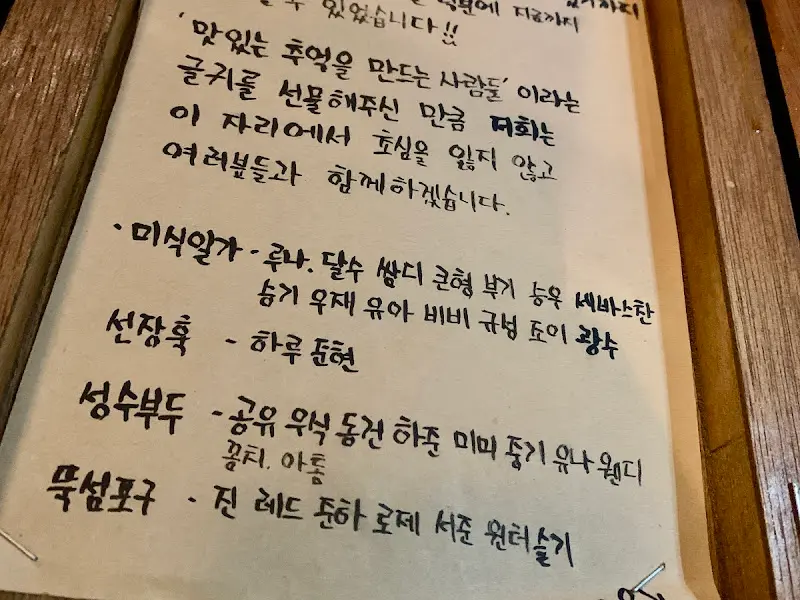 덕분에 지금까지
수 있었습니다!!
'맛있는 추억을 만드는 사람들' 이라는
글귀를 선물해주신 만큼 저희는
이 자리에서 초심을 잃지 않고
여러분들과 함께하겠습니다.
· 미식일가 - 루나. 달수 쌈디 큰형 부기 승우 세바스찬
슴기 우재 유아 비비 규섭 조이 광수
선장훅 - 하루 준현
성수부두 - 공유 우식 동건 하준 미미 중기 유나 웬디
꽁치. 아톰
뚝섬포구 - 진 레드 준하 로제 서준 윈터 슬기